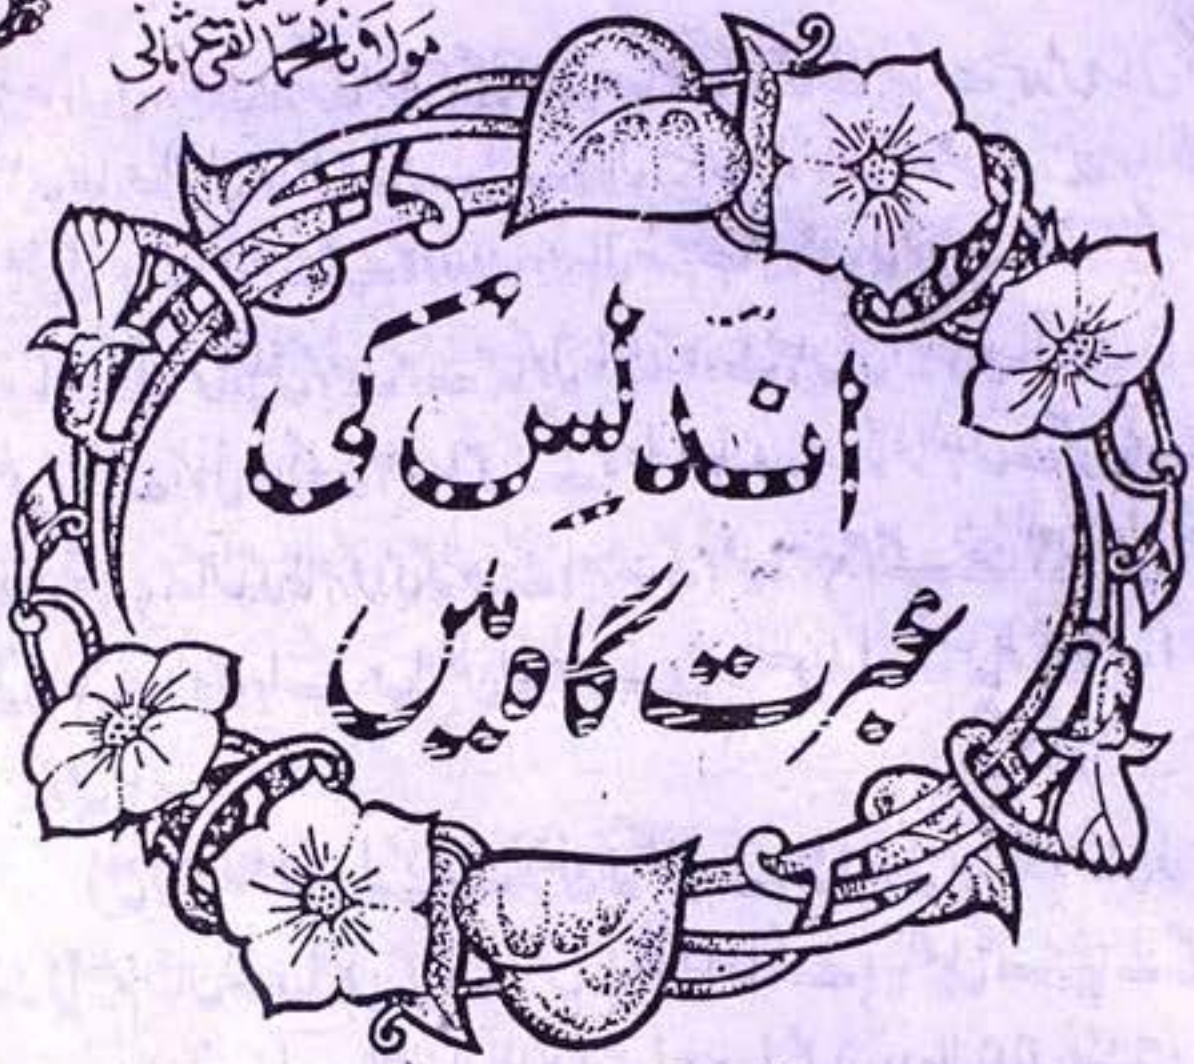 مولانا محمد تقی عثمانی
اندلس کی
عبرت گاہیں